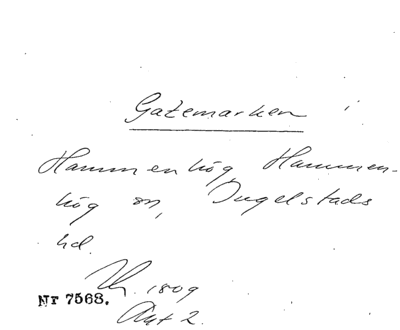 Gatemarken
Hammenhög, Hammen-
hög sn, Ingelstads
hd.
1809
Akt 2.
Nr 7568.